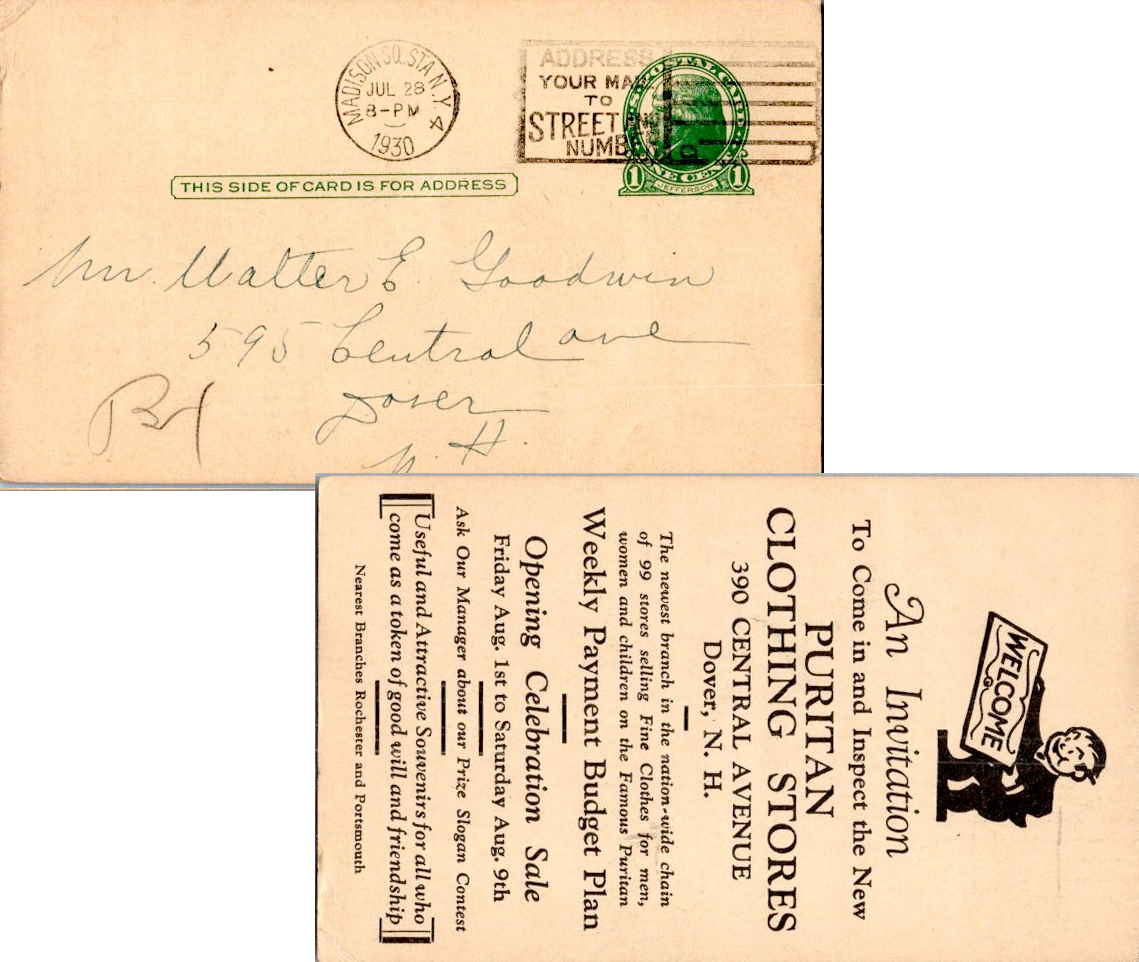 MADISON SQ. STA. N.Y. 4
JUL 28
8-PM
1930
ADDRESS
YOUR MAI
TO
STREET AND
NUMB
U.S. POSTAL CARD
ONE CENT
1 JEFFERSON 1
THIS SIDE OF CARD IS FOR ADDRESS
Mr. Walter E. Goodwin
595 Central ave
Dover
N. H.
WELCOME
An Invitation
To Come in and Inspect the New
PURITAN
CLOTHING STORES
390 CENTRAL AVENUE
Dover, N. H.
The newest branch in the nation-wide chain
of 99 stores selling Fine Clothes for men,
women and children on the Famous Puritan
Weekly Payment Budget Plan
Opening Celebration Sale
Friday Aug. 1st to Saturday Aug. 9th
Ask Our Manager about our Prize Slogan Contest
Useful and Attractive Souvenirs for all who
come as a token of good will and friendship
Nearest Branches Rochester and Portsmouth